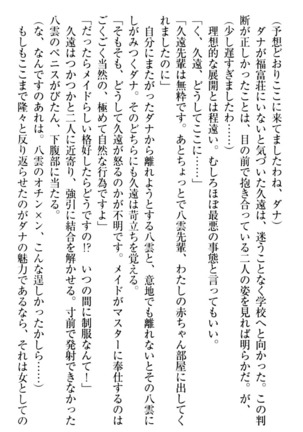 （予想どおりここに来てましたわね、ダナ）
ダナが福富荘にいないと気づいた久遠は、迷うことなく学校へと向かった。この判
断が正しかったことは、目の前で抱き合っている二人の姿を見れば明らかだ。が、
（少し遅すぎましたわ……）
理想的な展開とは程遠い。むしろほぼ最悪の事態と言ってもいい。
「く、久遠、どうしてここに……」
「久遠先輩は無粋です。あとちょっとで八雲先輩、わたしの赤ちゃん部屋に出してく
れましたのに」
自分にまたがったダナから離れようとする八雲と、意地でも離れないとその八雲に
しがみつくダナ。そのどちらにも久遠は苛立ちを覚える。
「そもそも、どうして久遠が怒るのかが不明です。メイドがマスターに奉仕するのは
ごくごく当然の、極めて自然な行為ですよ」
「だったらメイドらしい格好したらどうですの!?　いつの間に制服なんて！」
久遠はつかつかと二人に近寄り、強引に結合を解かせる。寸前で発射できなかった
八雲のペニスがびたん、と腹部に当たる。
（な、なんですのあれは。八雲のオチン×ン、こんな逞しかったかしら……）
もしもここまで隆々と反り返らせたのがダナの魅力であるなら、それは女としての